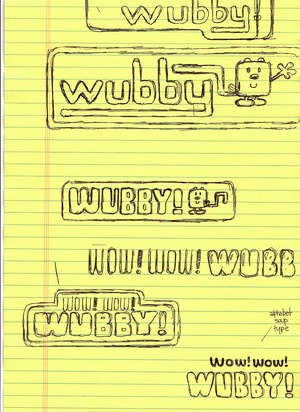 wubby!
wubby
WUBBY!
WOW! WOW! WUBB
WOW! WOW!
WUBBY!
alphabet
soup
type
Wow! wow!
WUBBY!